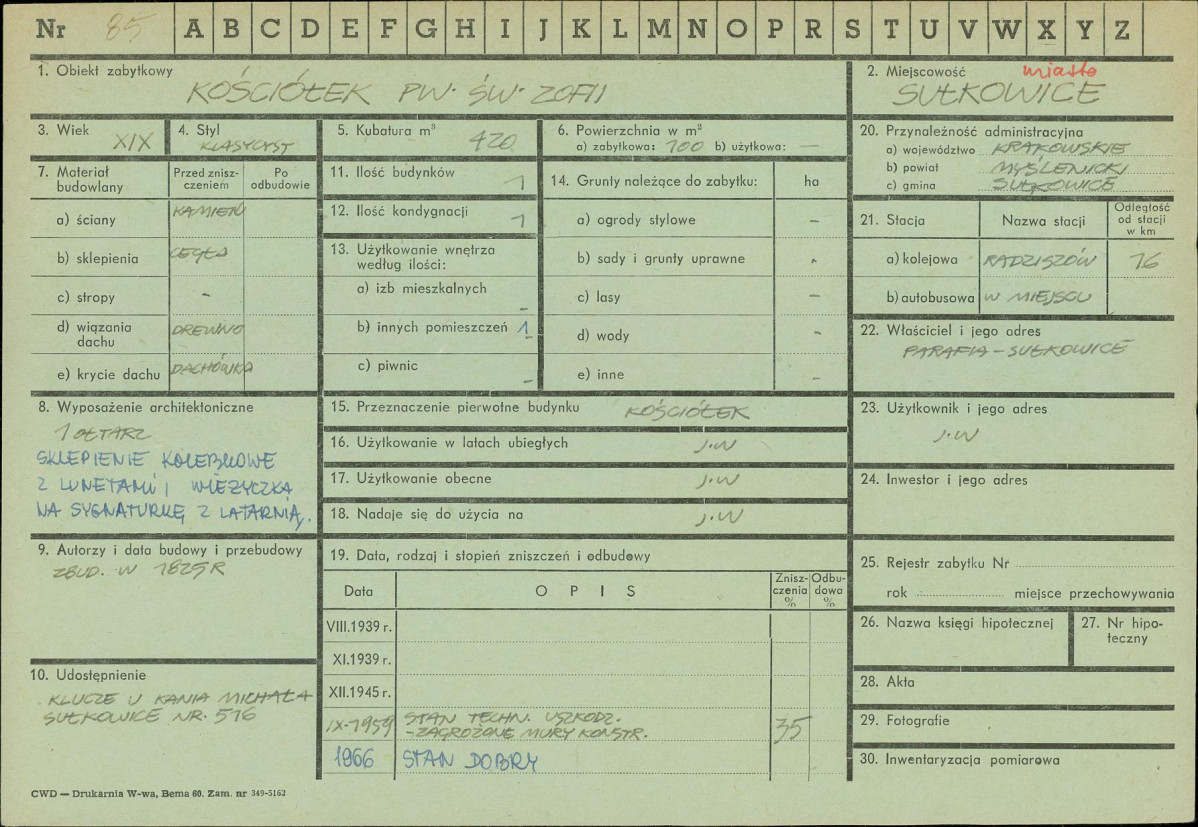 Nr 85 A B C D E F G H I J K L M N O P R S T U V W X Y Z
1. Obiekt zabytkowy
KOŚCIÓŁEK PW. ŚW. ZOFII
2. Miejscowość
miasto
SUŁKOWICE
3. Wiek
XIX
4. Styl
KLASYCYST
5. Kubatura m³
420
6. Powierzchnia w m²
a) zabytkowa: 100 b) użytkowa: —
20. Przynależność administracyjna
a) województwo KRAKOWSKIE
b) powiat MYŚLENICKI
c) gmina SUŁKOWICE
7. Materiał budowlany
Przed znisz-
czeniem
Po
odbudowie
a) ściany KAMIEŃ
b) sklepienia CEGŁA
c) stropy -
d) wiązania
dachu DREWNO
e) krycie dachu DACHÓWKA
11. Ilość budynków 1
12. Ilość kondygnacji 1
13. Użytkowanie wnętrza
według ilości:
a) izb mieszkalnych –
b) innych pomieszczeń 1
c) piwnic –
14. Grunty należące do zabytku: ha
a) ogrody stylowe –
b) sady i grunty uprawne -
c) lasy –
d) wody –
e) inne –
21. Stacja Nazwa stacji
Odległość
od stacji
w km
a) kolejowa RADZISZÓW 16
b) autobusowa W MIEJSCU
22. Właściciel i jego adres
PARAFIA – SUŁKOWICE
8. Wyposażenie architektoniczne
1 OŁTARZ
SKLEPIENIE KOLEBKOWE
Z LUNETAMI, WIEŻYCZKA
NA SYGNATURKĘ Z LATARNIĄ.
15. Przeznaczenie pierwotne budynku KOŚCIÓŁEK
16. Użytkowanie w latach ubiegłych J.W
17. Użytkowanie obecne J.W
18. Nadaje się do użycia na J.W
23. Użytkownik i jego adres
J.W
24. Inwestor i jego adres
9. Autorzy i data budowy i przebudowy
ZBUD. W 1825 R
19. Data, rodzaj i stopień zniszczeń i odbudowy
Data O P I S
Znisz-
czenia
%
Odbu-
dowa
%
VIII.1939 r.
XI.1939 r.
XII.1945 r.
IX-1959 STAN TECHN. USZKODZ.
-ZAGROŻONE MURY KONSTR. 35
1966 STAN DOBRY
10. Udostępnienie
KLUCZE U KANIA MICHAŁA
SUŁKOWICE NR. 516
25. Rejestr zabytku Nr
rok miejsce przechowywania
26. Nazwa księgi hipotecznej
27. Nr hipo-
teczny
28. Akta
29. Fotografie
30. Inwentaryzacja pomiarowa
CWD — Drukarnia W-wa, Bema 60. Zam. nr 349-5162